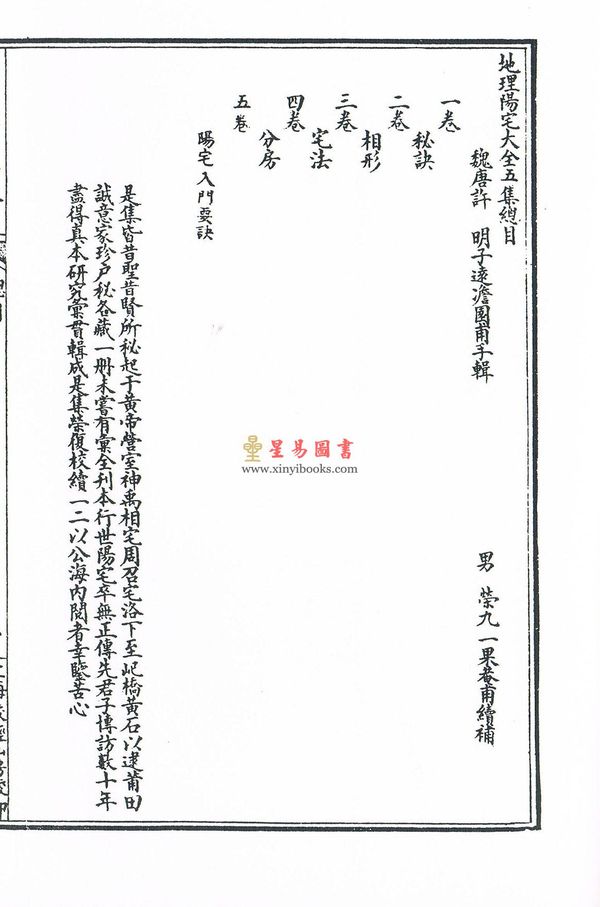 地理陽宅大全五集總目
魏唐許 明子遠澹園甫手輯
男 榮九一果菴甫續補
一卷
秘訣
二卷
相形
三卷
宅法
四卷
分房
五卷
陽宅入門要訣
是集皆昔聖昔賢所秘起于黃帝營室神禹相宅周召宅洛下至圯橋黃石以逮莆田
誠意家珍戶秘各藏一冊未嘗有彙全刊本行世陽宅卒無正傳先君子博訪數十年
盡得真本研究彙貫輯成是集榮復校續一二以公海內閱者幸鑒苦心
星易圖書
www.xinyibooks.com